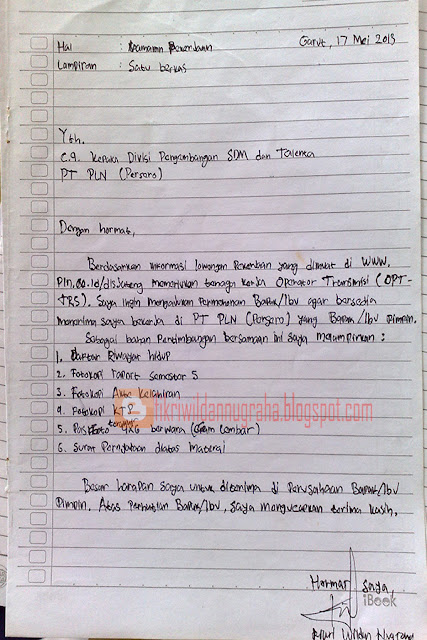 Hal : Lamaran Pekerjaan Garut, 17 Mei 2013
Lampiran : Satu berkas
Yth.
c.q. Kepala Divisi Pengembangan SDM dan Talenta
PT PLN (Persero)
Dengan hormat,
Berdasarkan informasi lowongan pekerjaan yang dimuat di www.
pln.co.id/disjateng memerlukan tenaga kerja Operator Transmisi (OPT-
TRS). Saya ingin mengajukan Permohonan Bapak/Ibu agar bersedia
menerima saya bekerja di PT PLN (Persero) yang Bapak/Ibu Pimpin.
Sebagai bahan Pertimbangan bersamaan ini saya melampirkan :
1. Daftar Riwayat hidup
2. Fotokopi raport semester 5
3. Fotokopi Akte Kelahiran
4. Fotokopi KTP
fikriwildannugraha.blogspot.com
5. Pas Foto terbaru 4x6 berwarna (Enam lembar)
6. Surat Pernyataan diatas Materai
Besar harapan saya untuk diterima di Perusahaan Bapak/Ibu
Pimpin. Atas Perhatian Bapak/Ibu, saya mengucapkan terima kasih.
Hormat saya,
iBook
Fikri Wildan Nugraha